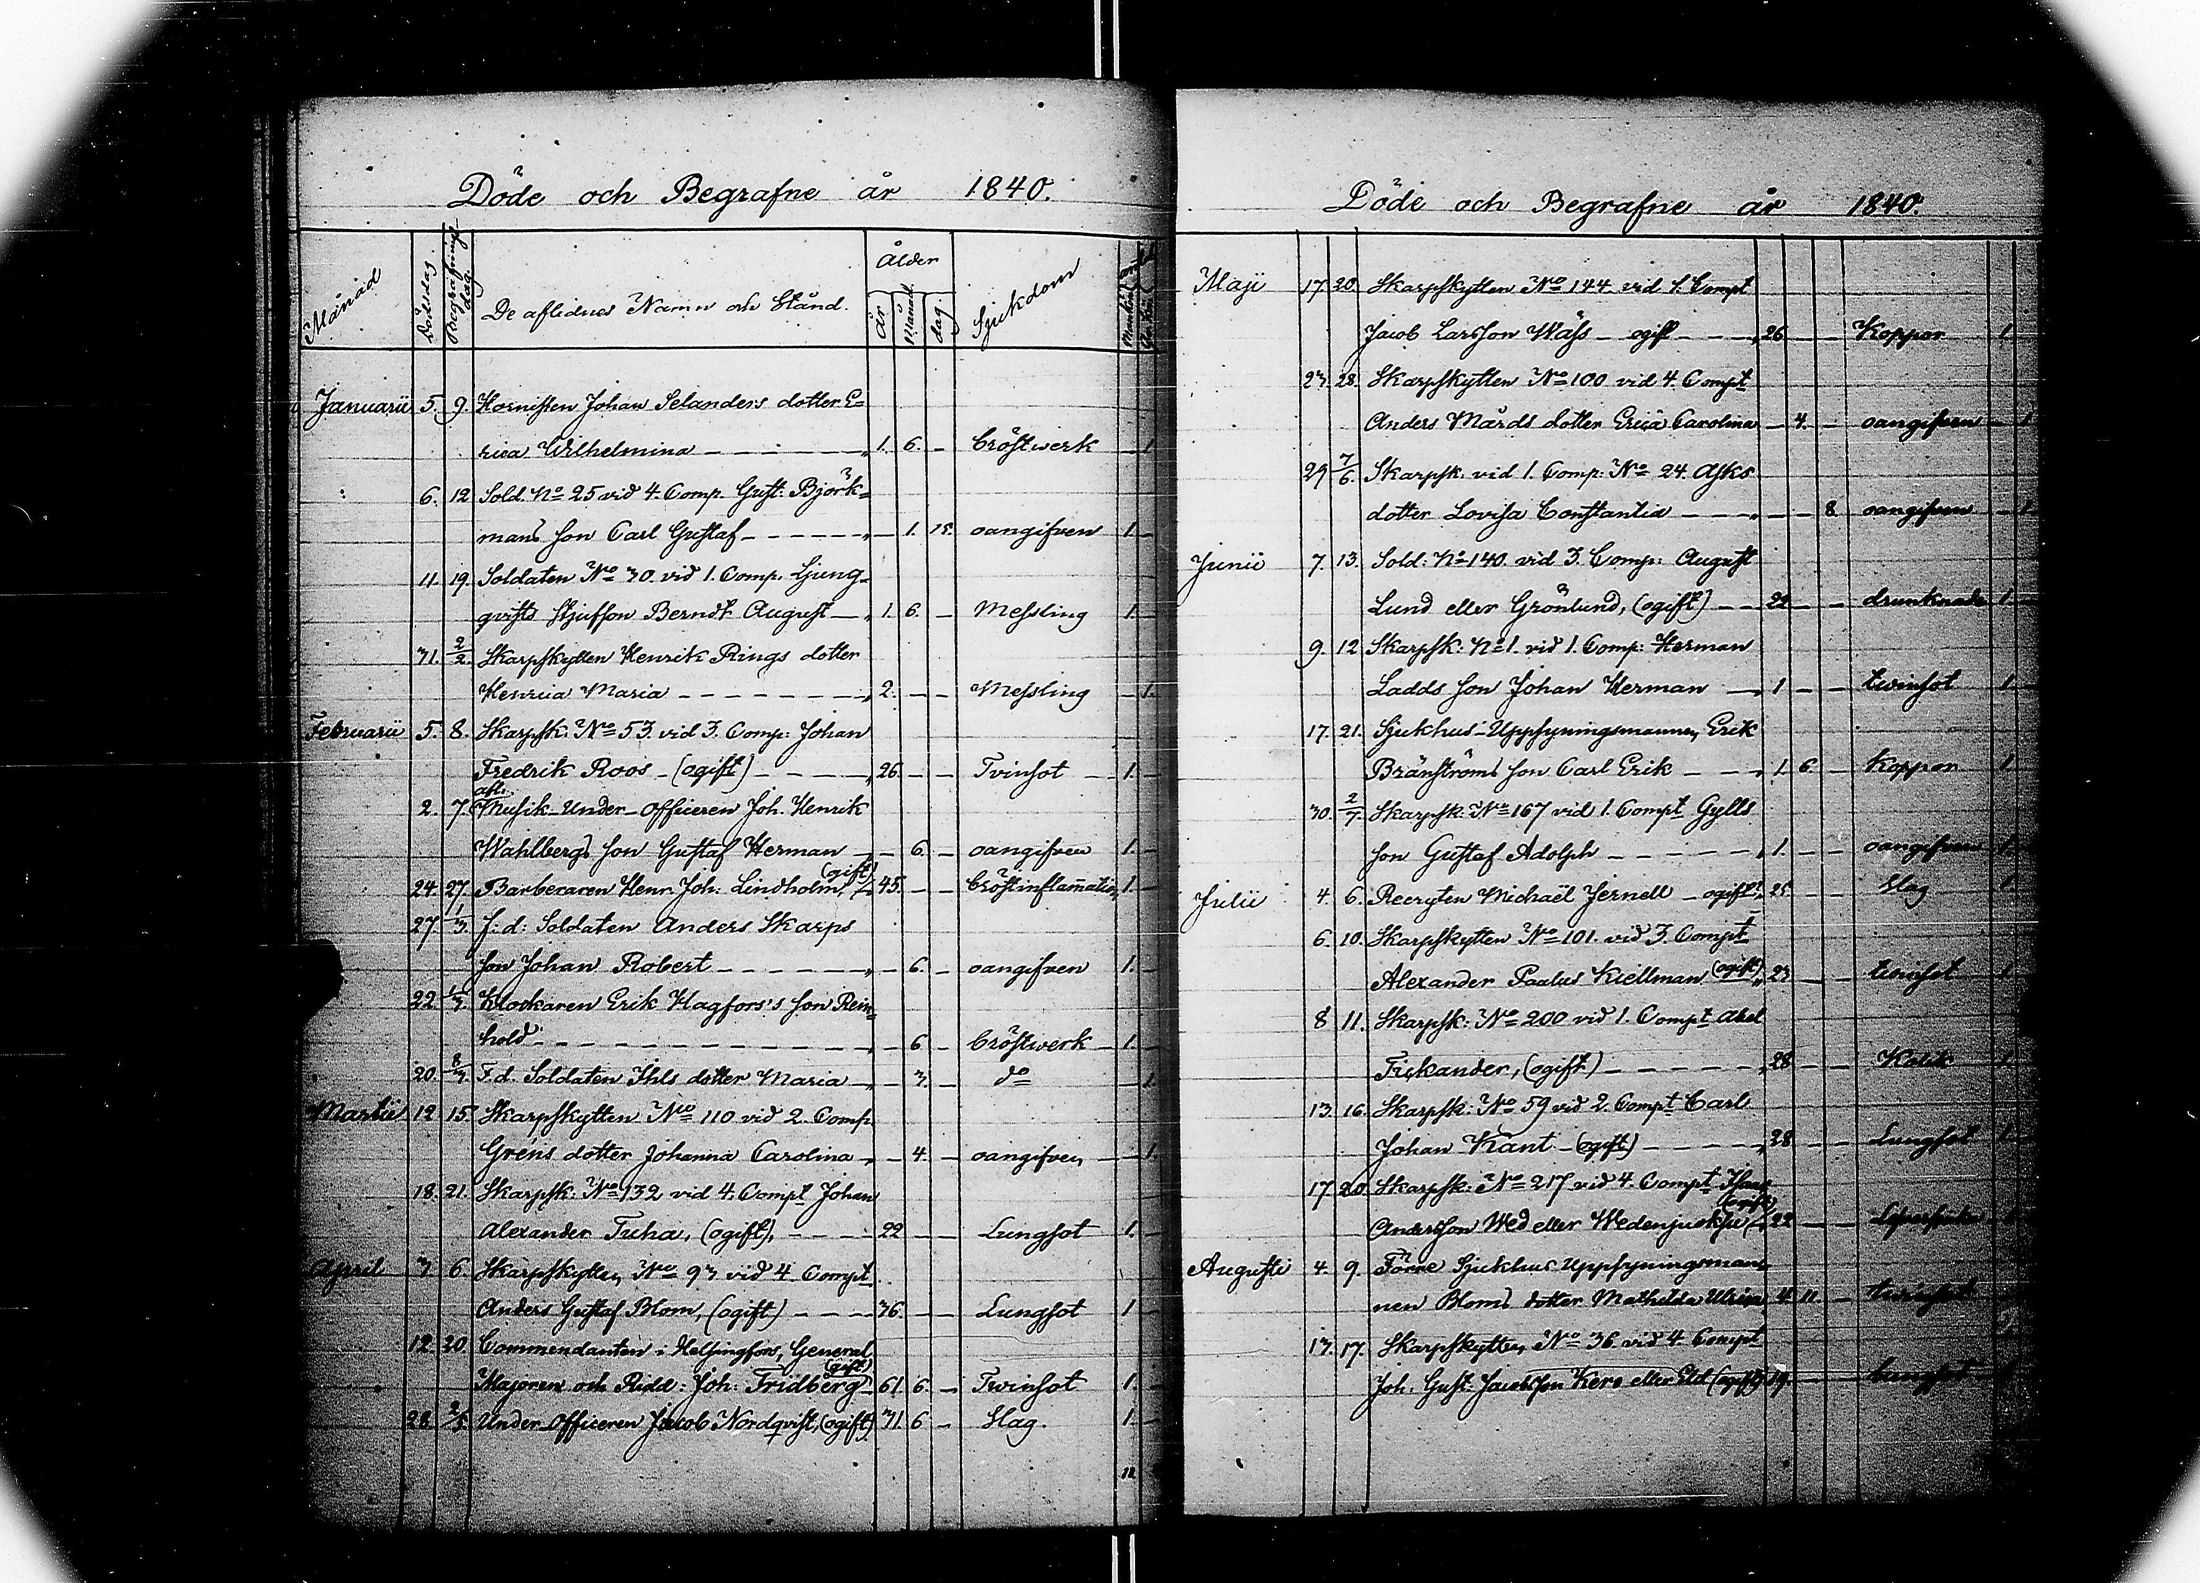 Döde och Begrafne år 1840.
Månad Dödsdag Begrafningsdag De aflidnes Namn och Stånd. Ålder år Månad dag Sjukdom
Januarii 5. 9. Hornisten Johan Selanders dotter E=
rica Wilhelmina 1. 6. – bröstwerk 1
6. 12 Sold. No 25 vid 4. Comp. Gust: Björk=
mans son Carl Gustaf – 1. 15. oangifven 1.
11. 19. Soldaten No 30 vid 1. Comp. Ljung-
qvists styfson Berndt August 1. 6. – Messling 1.
31. 2/2. Skarpskytten Henrik Rings dotter
Henrica Maria 2. – – Messling – 1.
Februarii 5. 8. Skarpsk: No 53 vid 3. Comp: Johan
Fredrik Roos – (ogift) 26. – – Tvinsot 1.
2. 7. afl. Musik-Under-Officeren Joh. Henrik
Wahlbergs son Gustaf Herman – 6. – oangifven 1.
24. 27. Barberaren Henr. Joh: Lindholm, (gift) 45. – – bröstinflam̄ation 1.
27. 1/3. f: d: Soldaten Anders Skarps
son Johan Robert – 6. – oangifven 1.
22 1/3. Klockaren Erik Hagfors's son Rein=
hold – 6 – bröstwerk 1.
20. 8/3. F.d. Soldaten Ihls dotter Maria – 3. – do 1.
Martii 12 15. Skarpskytten No 110 vid 2. Comp.
Gréns dotter Johanna Carolina – 4. – oangifven 1.
18. 21. Skarpsk: No 132 vid 4. Compt Johan
Alexander Tuha, (ogift), 22 Lungsot 1.
April 3 6. Skarpskytten No 93 vid 4 Compt
Anders Gustaf Blom, (ogift) 36. – – Lungsot 1
12. 20. Commendanten i Helsingfors, General
Majoren och Ridd: Joh: Fridberg (gift) 61. 6. – Tvinsot 1.
28. 2/5. Under Officeren Jacob Nordqvist, (ogift) 31. 6 – Slag. 1.
12
Döde och Begrafne år 1840.
Maji 17. 20. Skarpskytten No 144 vid 1. Compt
Jacob Larsson Wäss – ogift 26 – – Koppor 1.
23. 28. Skarpskytten No 100 vid 4. Compt
Anders Mårds dotter Erica Carolina – 4. – oangifven – 1
29 7/6. Skarpsk. vid 1. Comp: No 24. Asks
dotter Lovisa Constantia – – 8 oangifven – 1
Junii 7. 13. Sold: No 140. vid 3. Comp: August
Lund eller Grönlund, (ogift) 22 – – drunknade 1
9. 12 Skarpsk: No 1. vid 1. Comp: Herman
Ladds son Johan Herman 1 – – tvinsot 1.
17. 21. Sjukhus-Uppsyningsmannen Erik
Bränströms son Carl Erik 1. 6. – Koppor 1.
30. 2/7. Skarpsk: No 167 vid 1. Compt Gylls
son Gustaf Adolph 1. – – oangifven 1.
Julii 4. 6. Recryten Michaël Jernell – ogift 25 – – Slag 1
6. 10. Skarpskytten No 101. vid 3. Compt
Alexander Paulus Kiellman (ogift) 23 – – tvinsot 1
8 11. Skarpsk: No 200 vid 1. Compt Abel
Fiskander, (ogift) 28 – – Kolik 1
13. 16. Skarpsk: No 59 vid 2. Compt Carl
Johan Kant – (ogift) 28 – – Lungsot 1
17. 20. Skarpsk: No 217 vid 4. Compt
Andersson Wed eller (ogift) 22 – –
Augusti 4. 9. Förre Sjukhus Uppsyningsman-
nen Bloms dotter Mathilda Ulrica 4. 11. – tvinsot
13. 17. Skarpskytten No 36. vid 4. Compt
Joh. Gust. Jacobsson Kero eller Eld (ogift) 19. – – Lungsot